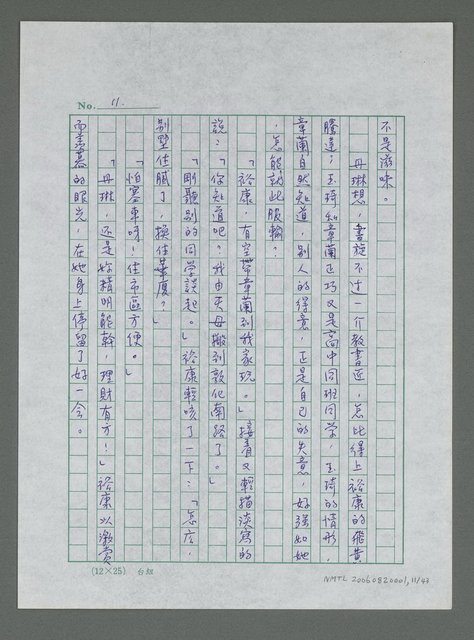 No. 11.
不是滋味。
丹琳想，書旋不过一介教書匠，怎比得上裕康的飛黃
騰達；玉琦和章蘭正巧又是高中同班同学，玉琦的情形，
章蘭自然知道，別人的得意，正是自己的失意，好强如她
，怎能就此服輸？
「裕康，有空帶章蘭到我家玩。」接着又輕描淡寫的
說：「你知道吧？我由天母搬到敦化南路了。」
「剛聽別的同学談起。」裕康輕咳了一下：「怎么，
別墅住膩了，換住華廈？」
「怕塞車呀！住市區方便。」
「丹琳，还是妳精明能幹，理財有方！」裕康以激賞
而羨慕的眼光，在她身上停留了好一会。
(12×25) 台組
NMTL 20060820001,11/43